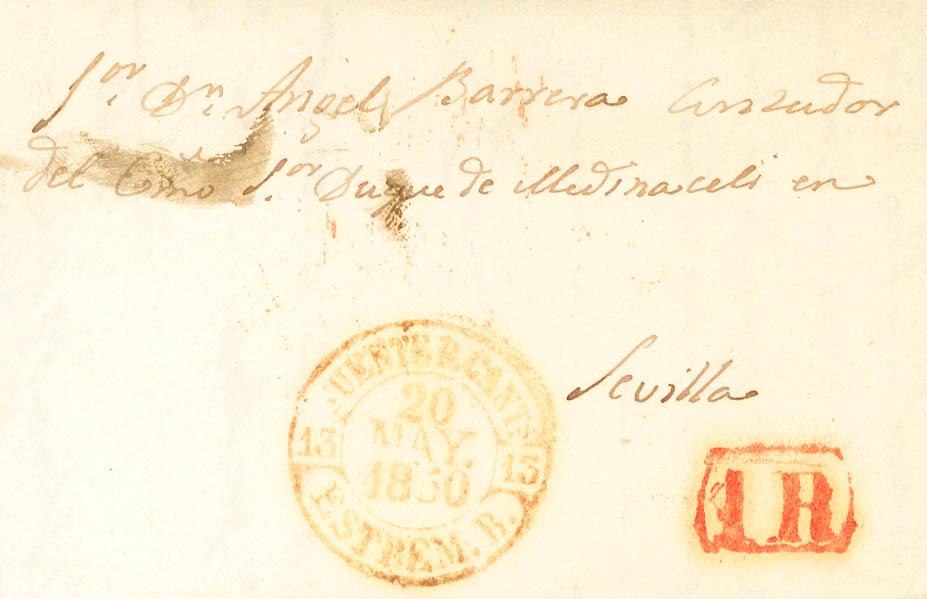 Sor. Dn. Angel Barrera Contador
del Exmo Sor. Duque de Medinaceli en
Sevilla
FUENTE D. CANTS
20
MAY.
1850
13
13
ESTREM. B.
1 R